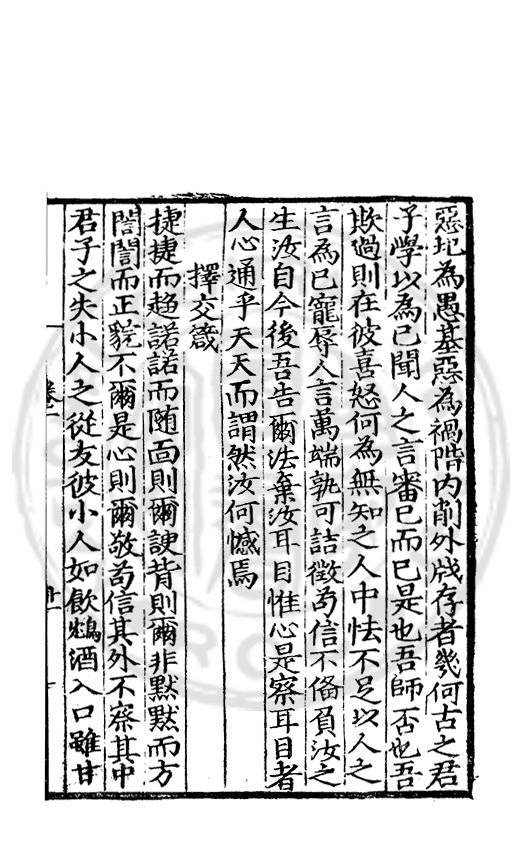 惡圯為愚基惡為禍階內削外戕存者幾何古之君
子學以為己聞人之言審己而已是也吾師否也吾
欺過則在彼喜怒何為無知之人中怯不足以人之
言為己寵辱人言萬端孰可詰徵苟信不俻負汝之
生汝自今後吾告爾法棄汝耳目惟心是察耳目者
人心通乎天天而謂然汝何憾焉
擇交箴
捷捷而趨諾諾而随面則爾諛背則爾非默默而方
誾誾而正貌不爾是心則爾敬苟信其外不察其中
君子之失小人之從友彼小人如飲鴆酒入口雖甘
卷一